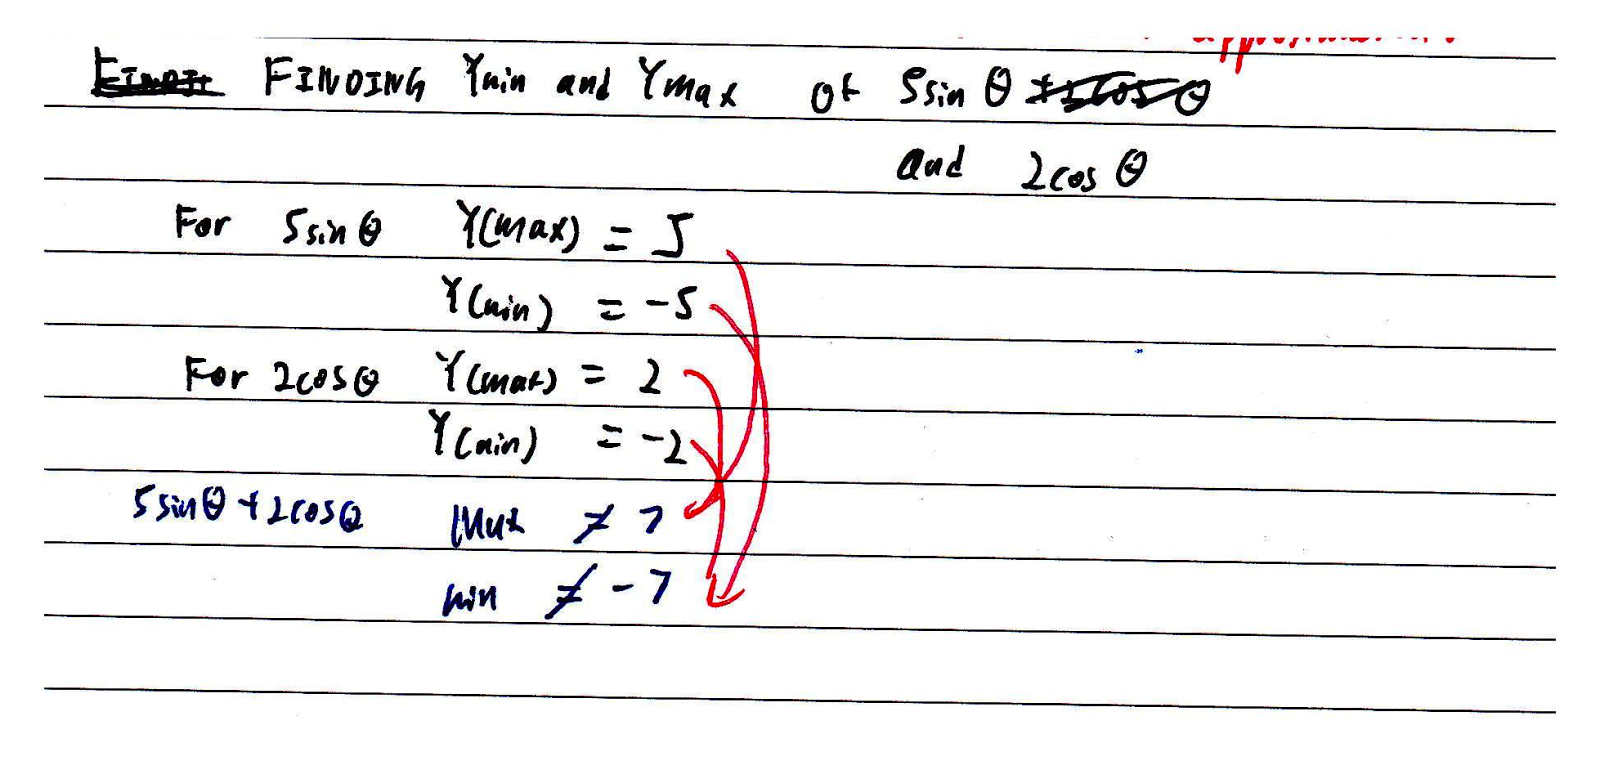 FINDING Ymin and Ymax of 5sin θ
and 2cos θ
For 5sin θ Y(max) = 5
Y(min) = -5
For 2cosθ Y(max) = 2
Y(min) = -2
5sinθ + 2cosθ Max ≠ 7
min ≠ -7